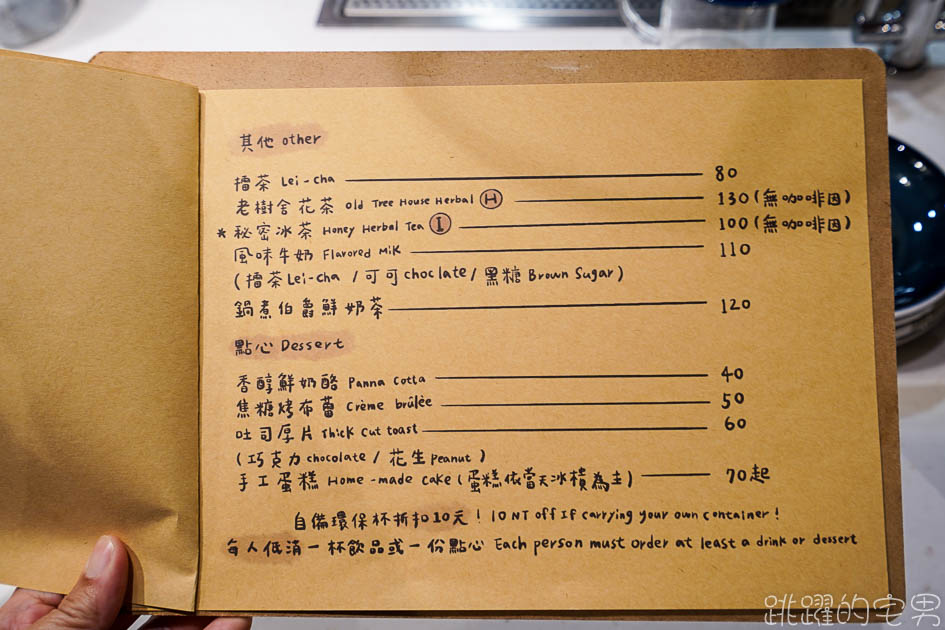 其他 other
擂茶 Lei-cha 80
老樹舍花茶 Old Tree House Herbal H 130(無咖啡因)
*秘密冰茶 Honey Herbal Tea I 100(無咖啡因)
風味牛奶 Flavored Milk 110
(擂茶Lei-cha / 可可choclate / 黑糖Brown Sugar)
鍋煮伯爵鮮奶茶 120
點心 Dessert
香醇鮮奶酪 Panna Cotta 40
焦糖烤布蕾 Crème brûlèe 50
吐司厚片 Thick Cut toast 60
(巧克力chocolate / 花生peanut)
手工蛋糕 Home-made Cake (蛋糕依當天冰櫃為主) 70起
自備環保杯折扣10元! 10 NT off If carrying your own container!
每人低消一杯飲品或一份點心 Each person must order at least a drink or dessert
跳躍的宅男